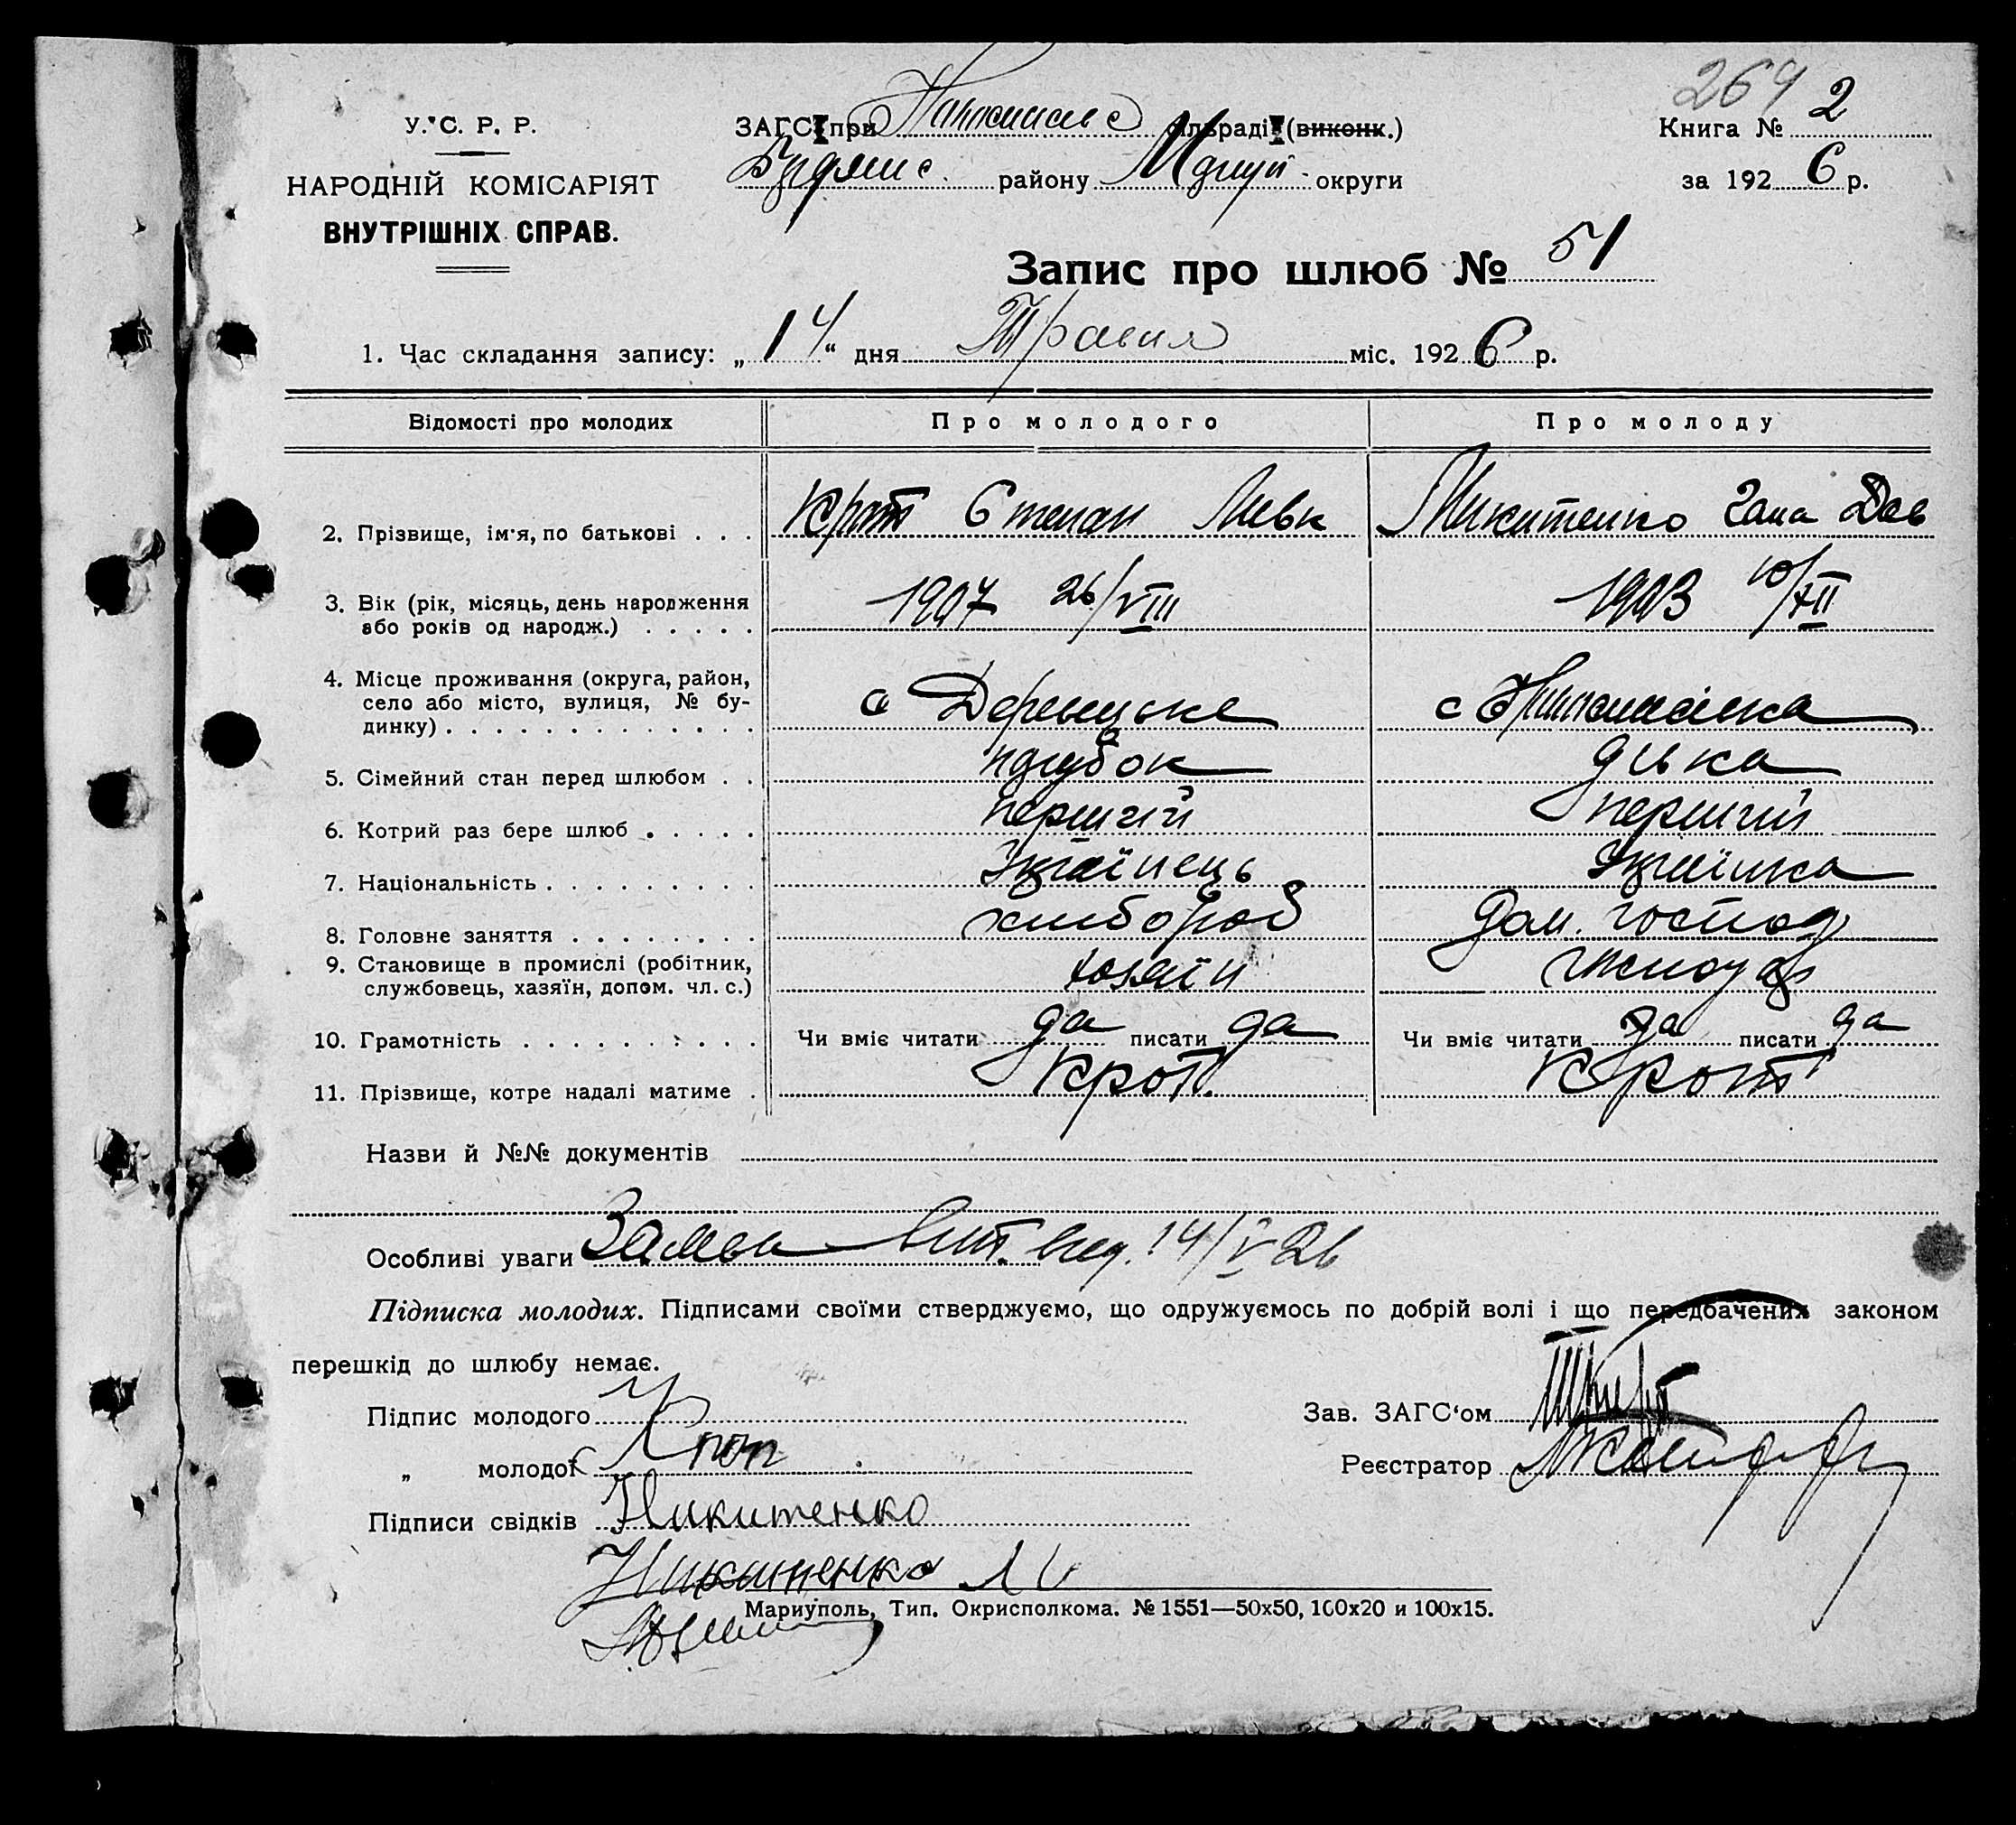 264
У. С. Р. Р.
НАРОДНІЙ КОМІСАРІЯТ
ВНУТРІШНІХ СПРАВ.
ЗАГС при сільраді (виконк.)
району округи
Книга № 2
за 1926 р.
Запис про шлюб № 51
1. Час складання запису: „14“ дня Травня міс. 1926 р.
Відомості про молодих Про молодого Про молоду
2. Прізвище, ім'я, по батькові . . . Крот Степан Левк Микитенко Гана Дав
3. Вік (рік, місяць, день народження 1907 26/VIII 1903 10/XII
або років од народж.) . . . . .
4. Місце проживання (округа, район,
село або місто, вулиця, № бу- с с
динку) . . . . . . . . . . . . .
5. Сімейний стан перед шлюбом . . парубок дівка
6. Котрий раз бере шлюб . . . . . перший перший
7. Національність . . . . . . . . . Українець Українка
8. Головне заняття . . . . . . . . хлібороб Дом. господ
9. Становище в промислі (робітник, хозяїн
службовець, хазяїн, допом. чл. с.)
10. Грамотність . . . . . . . . . . Чи вміє читати да писати да Чи вміє читати да писати да
11. Прізвище, котре надалі матиме . Крот. Крот
Назви й №№ документів
Особливі уваги 14/V 26
Підписка молодих. Підписами своїми стверджуємо, що одружуємось по добрій волі і що передбачених законом
перешкід до шлюбу немає.
Підпис молодого Крот
„ молодої
Підписи свідків Никитенко
Никитенко
Зав. ЗАГС‘ом
Реєстратор
Мариуполь, Тип. Окрисполкома. № 1551—50х50, 100х20 и 100х15.